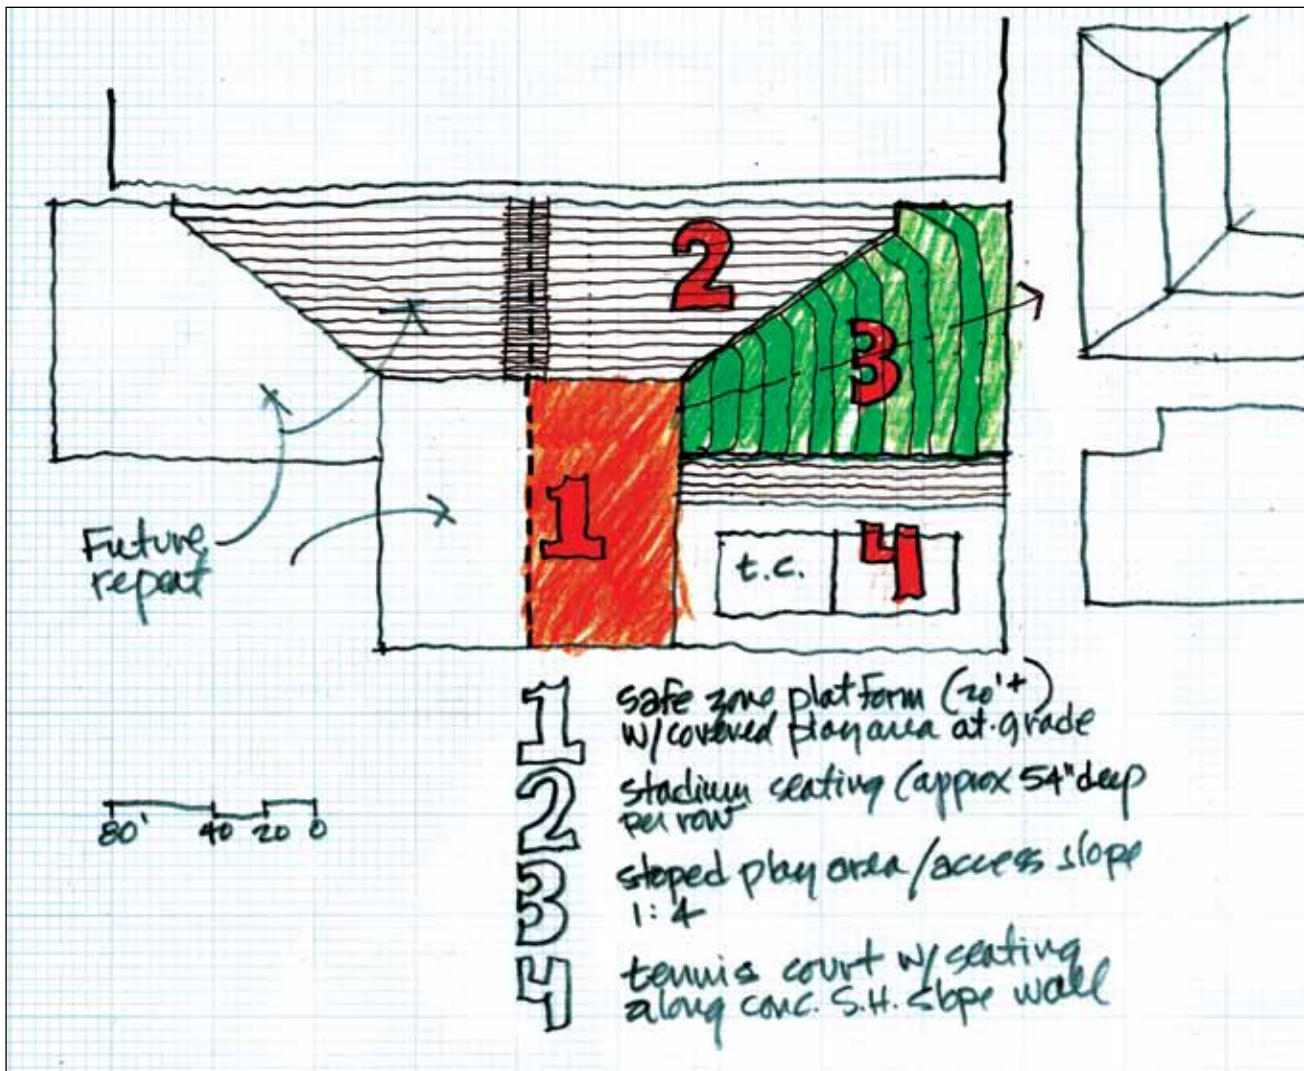 2
3
1
t.c.
4
Future
repeat
1 safe zone platform (20'+)
w/covered play area at grade
2 stadium seating (approx 54" deep
per row
3 sloped play area/access slope
1:4
4 tennis court w/seating
along conc. S.H. slope wall
80' 40 20 0